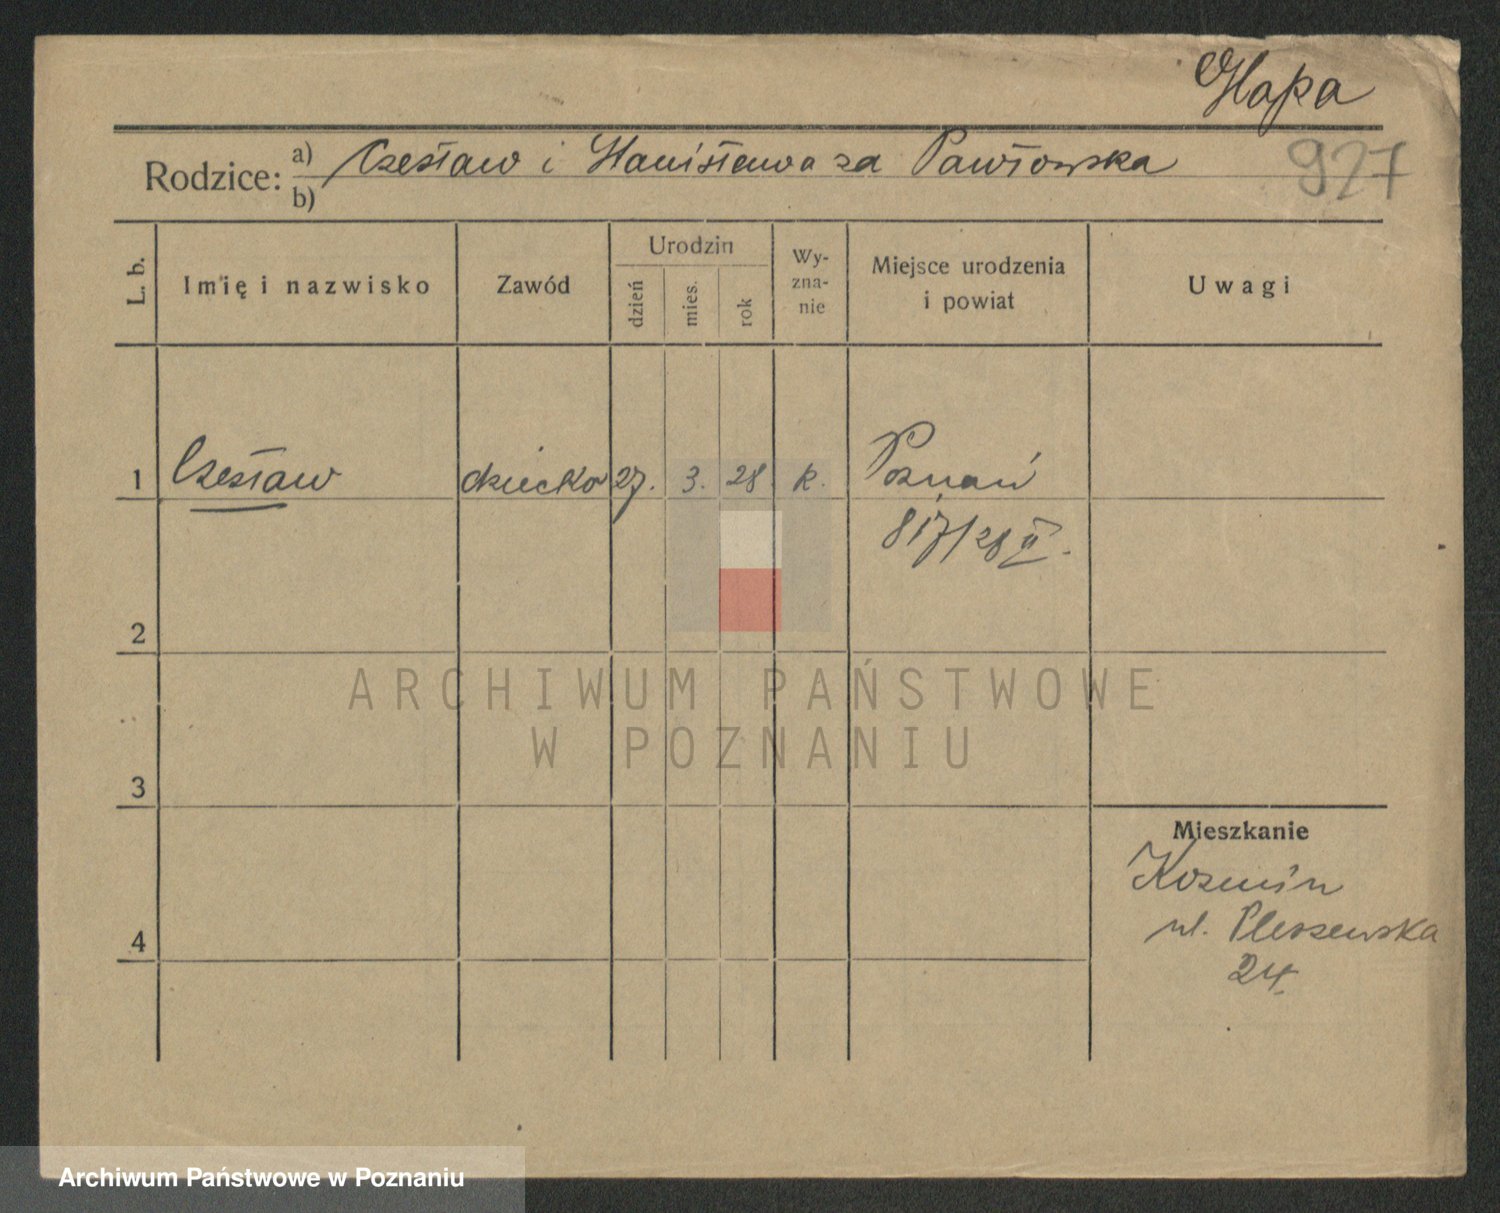 Hapa
Rodzice: a) Czesław i Stanisława za Pawłowska
b)
927
L. b.
Imię i nazwisko
Zawód
Urodzin
dzień
mies.
rok
Wy-
zna-
nie
Miejsce urodzenia
i powiat
Uwagi
1 Czesław dziecko 27. 3. 28 k. Poznań
817/28 II.
2
ARCHIWUM PAŃSTWOWE
W POZNANIU
3
Mieszkanie
Kozmin
ul. Pleszewska
24.
4
Archiwum Państwowe w Poznaniu